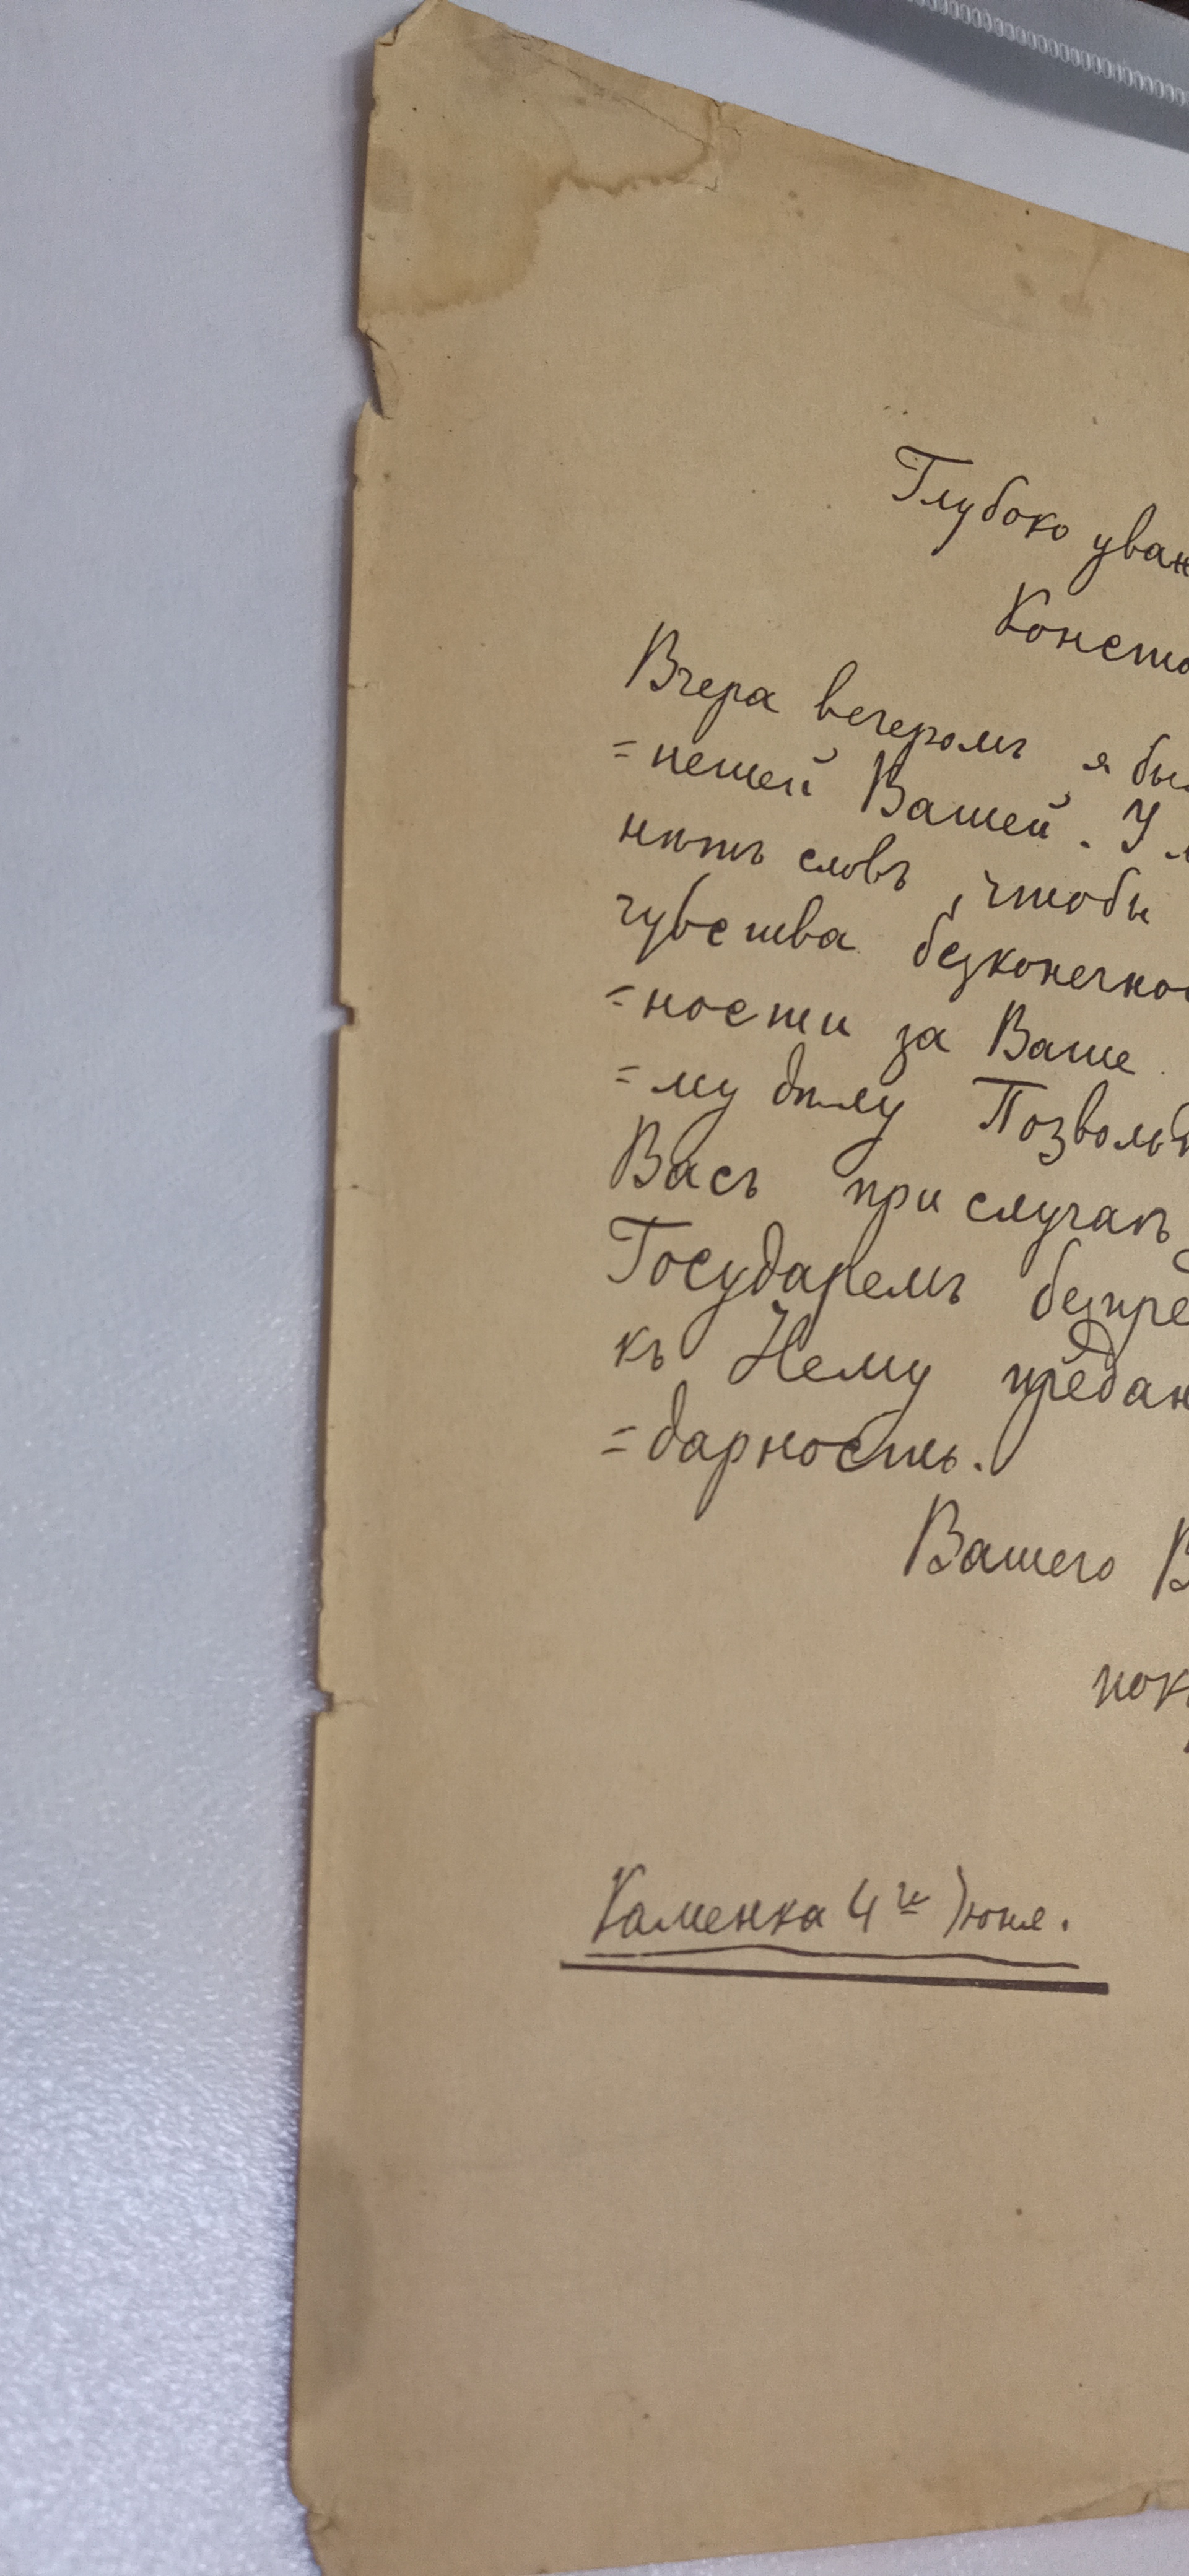 Глубоко уваж
Конста
Вчера вечеромъ я бы
=пешей Вашей. У
нѣтъ словъ, чтобы
чувства безконечно
=ности за Ваше
=му дѣлу Позвольт
Васъ при случаѣ
Государемъ безпре
къ Нему предан
=дарность.
Вашего В
пок
Каменка 4го Іюня.